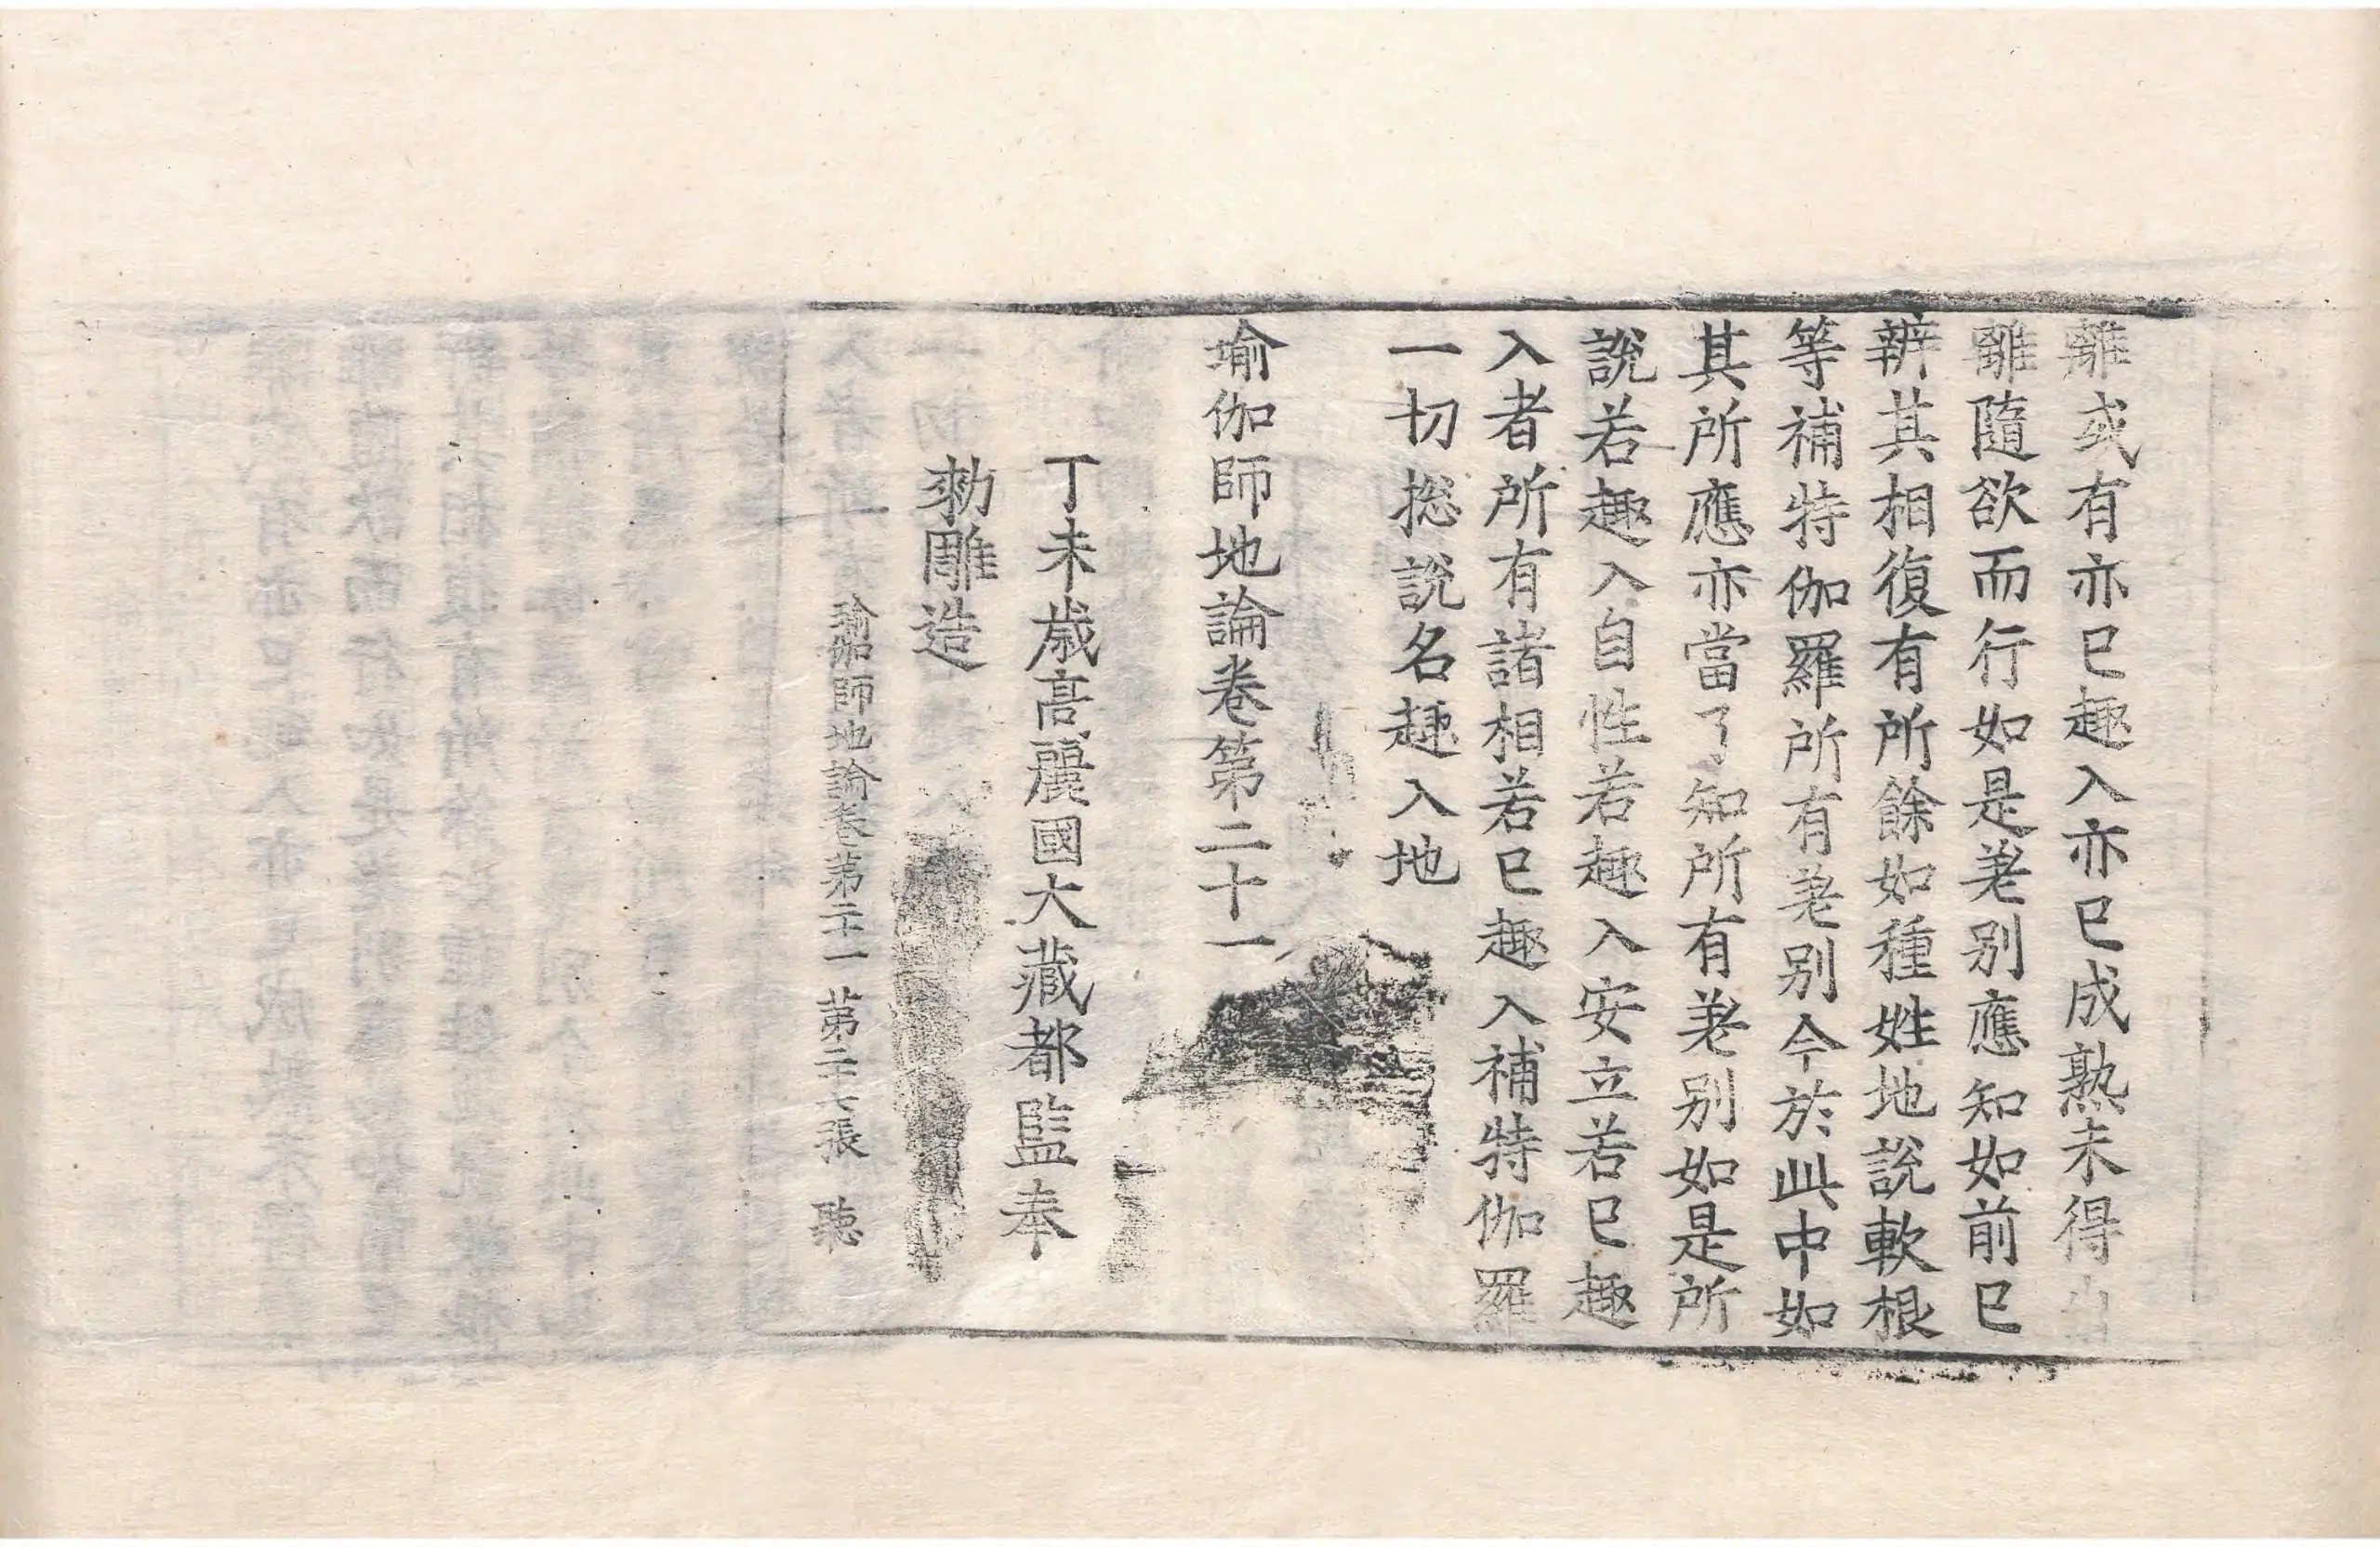 離或有亦已趣入亦已成熟未得出
離隨欲而行如是差別應知如前已
辨其相復有所餘如種姓地說軟根
等補特伽羅所有差別今於此中如
其所應亦當了知所有差別如是所
說若趣入自性若趣入安立若已趣
入者所有諸相若已趣入補特伽羅
一切捴說名趣入地
瑜伽師地論卷第二十一
丁未歲高麗國大藏都監奉
勑雕造
瑜伽師地論卷第二十一 第二十七張 聽